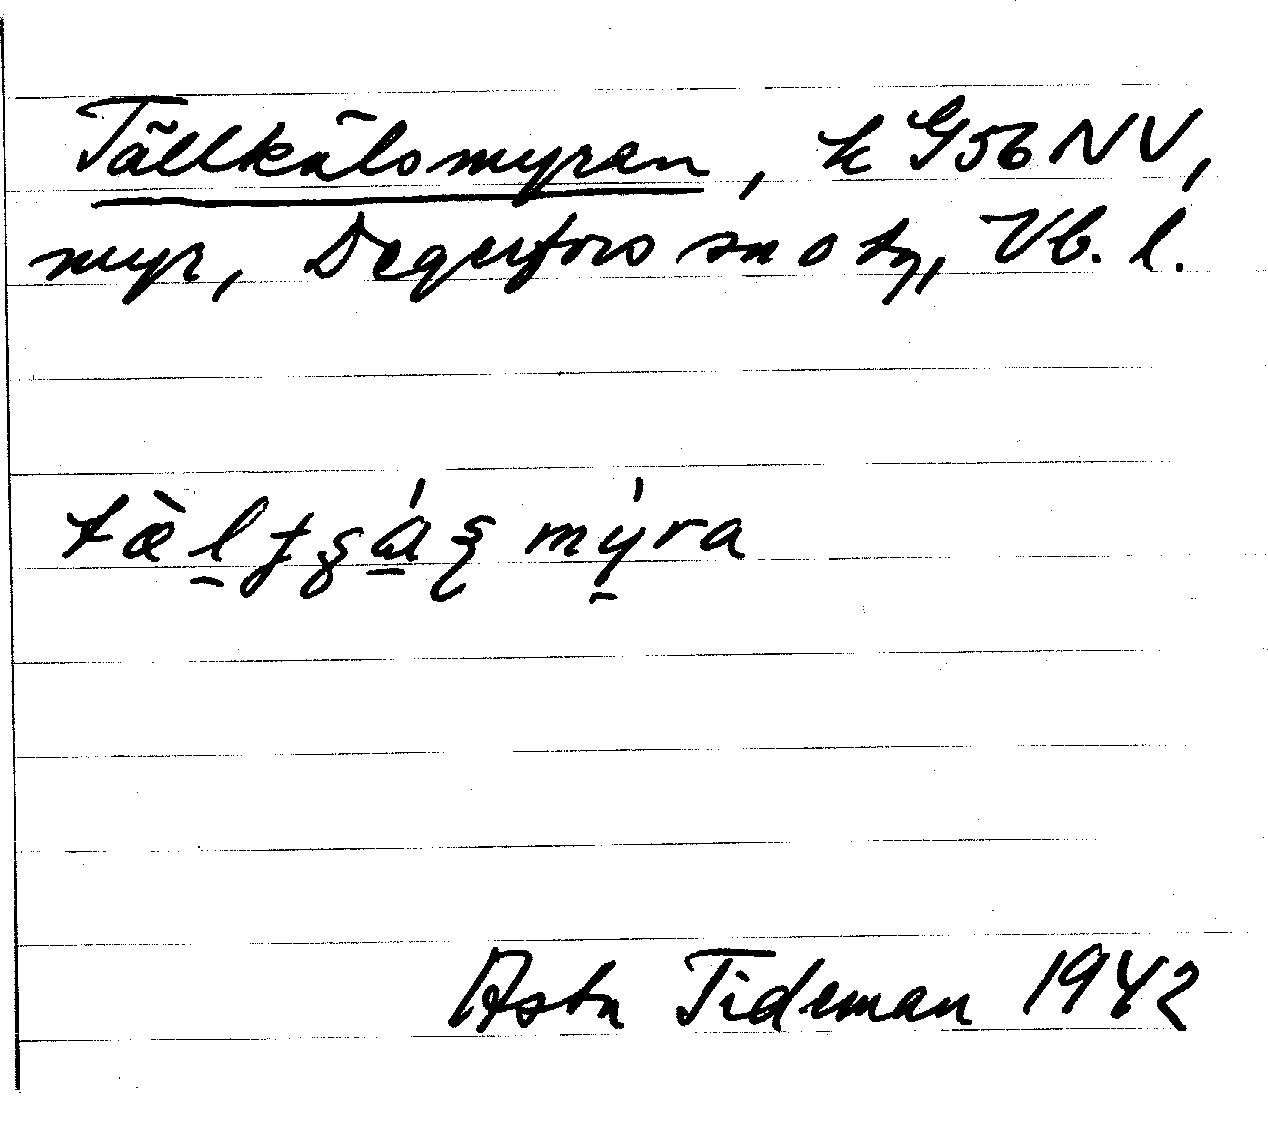 Tällkälsmyran, k G56NV,
myr, Degerfors sn o tg, Vb. l.
mýra
Asta Tideman 1942